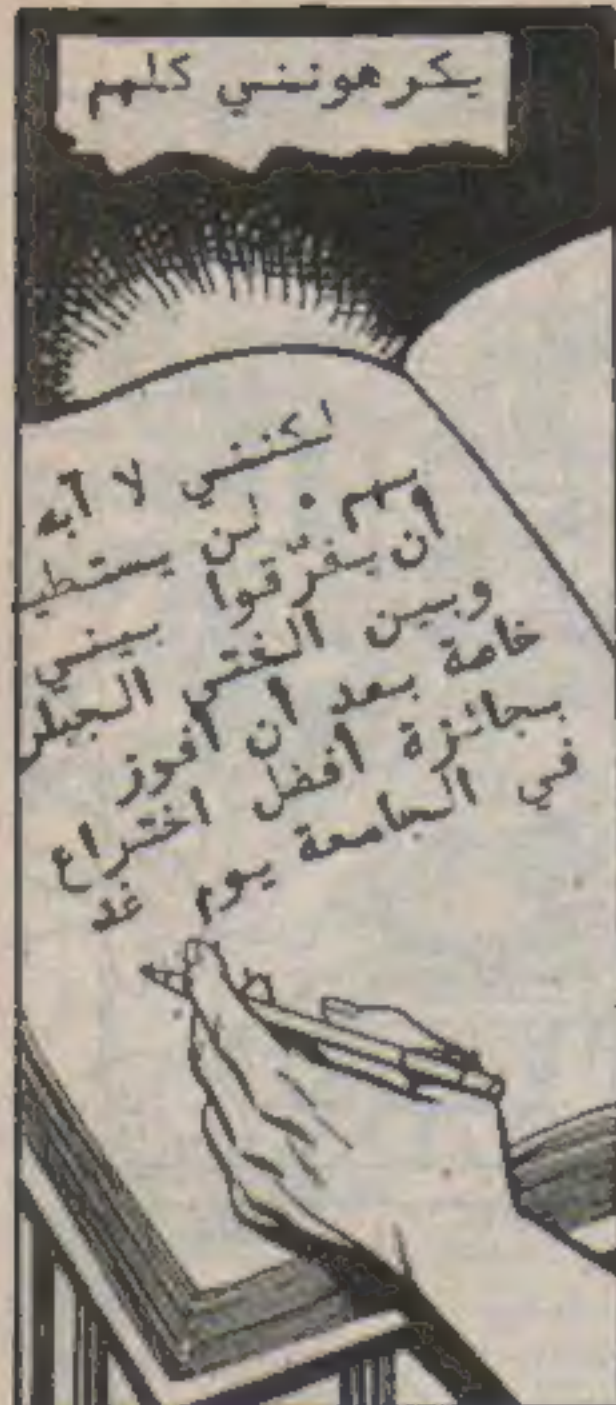 يكرهونني كلهم
لكنني لا آبه
بهم . لن يستطيـ
أن يفرّقوا بيني
وبين الفتى الجبار
خاصة بعد أن أفوز
بجائزة أفضل اختراع
في الجامعة يوم غد